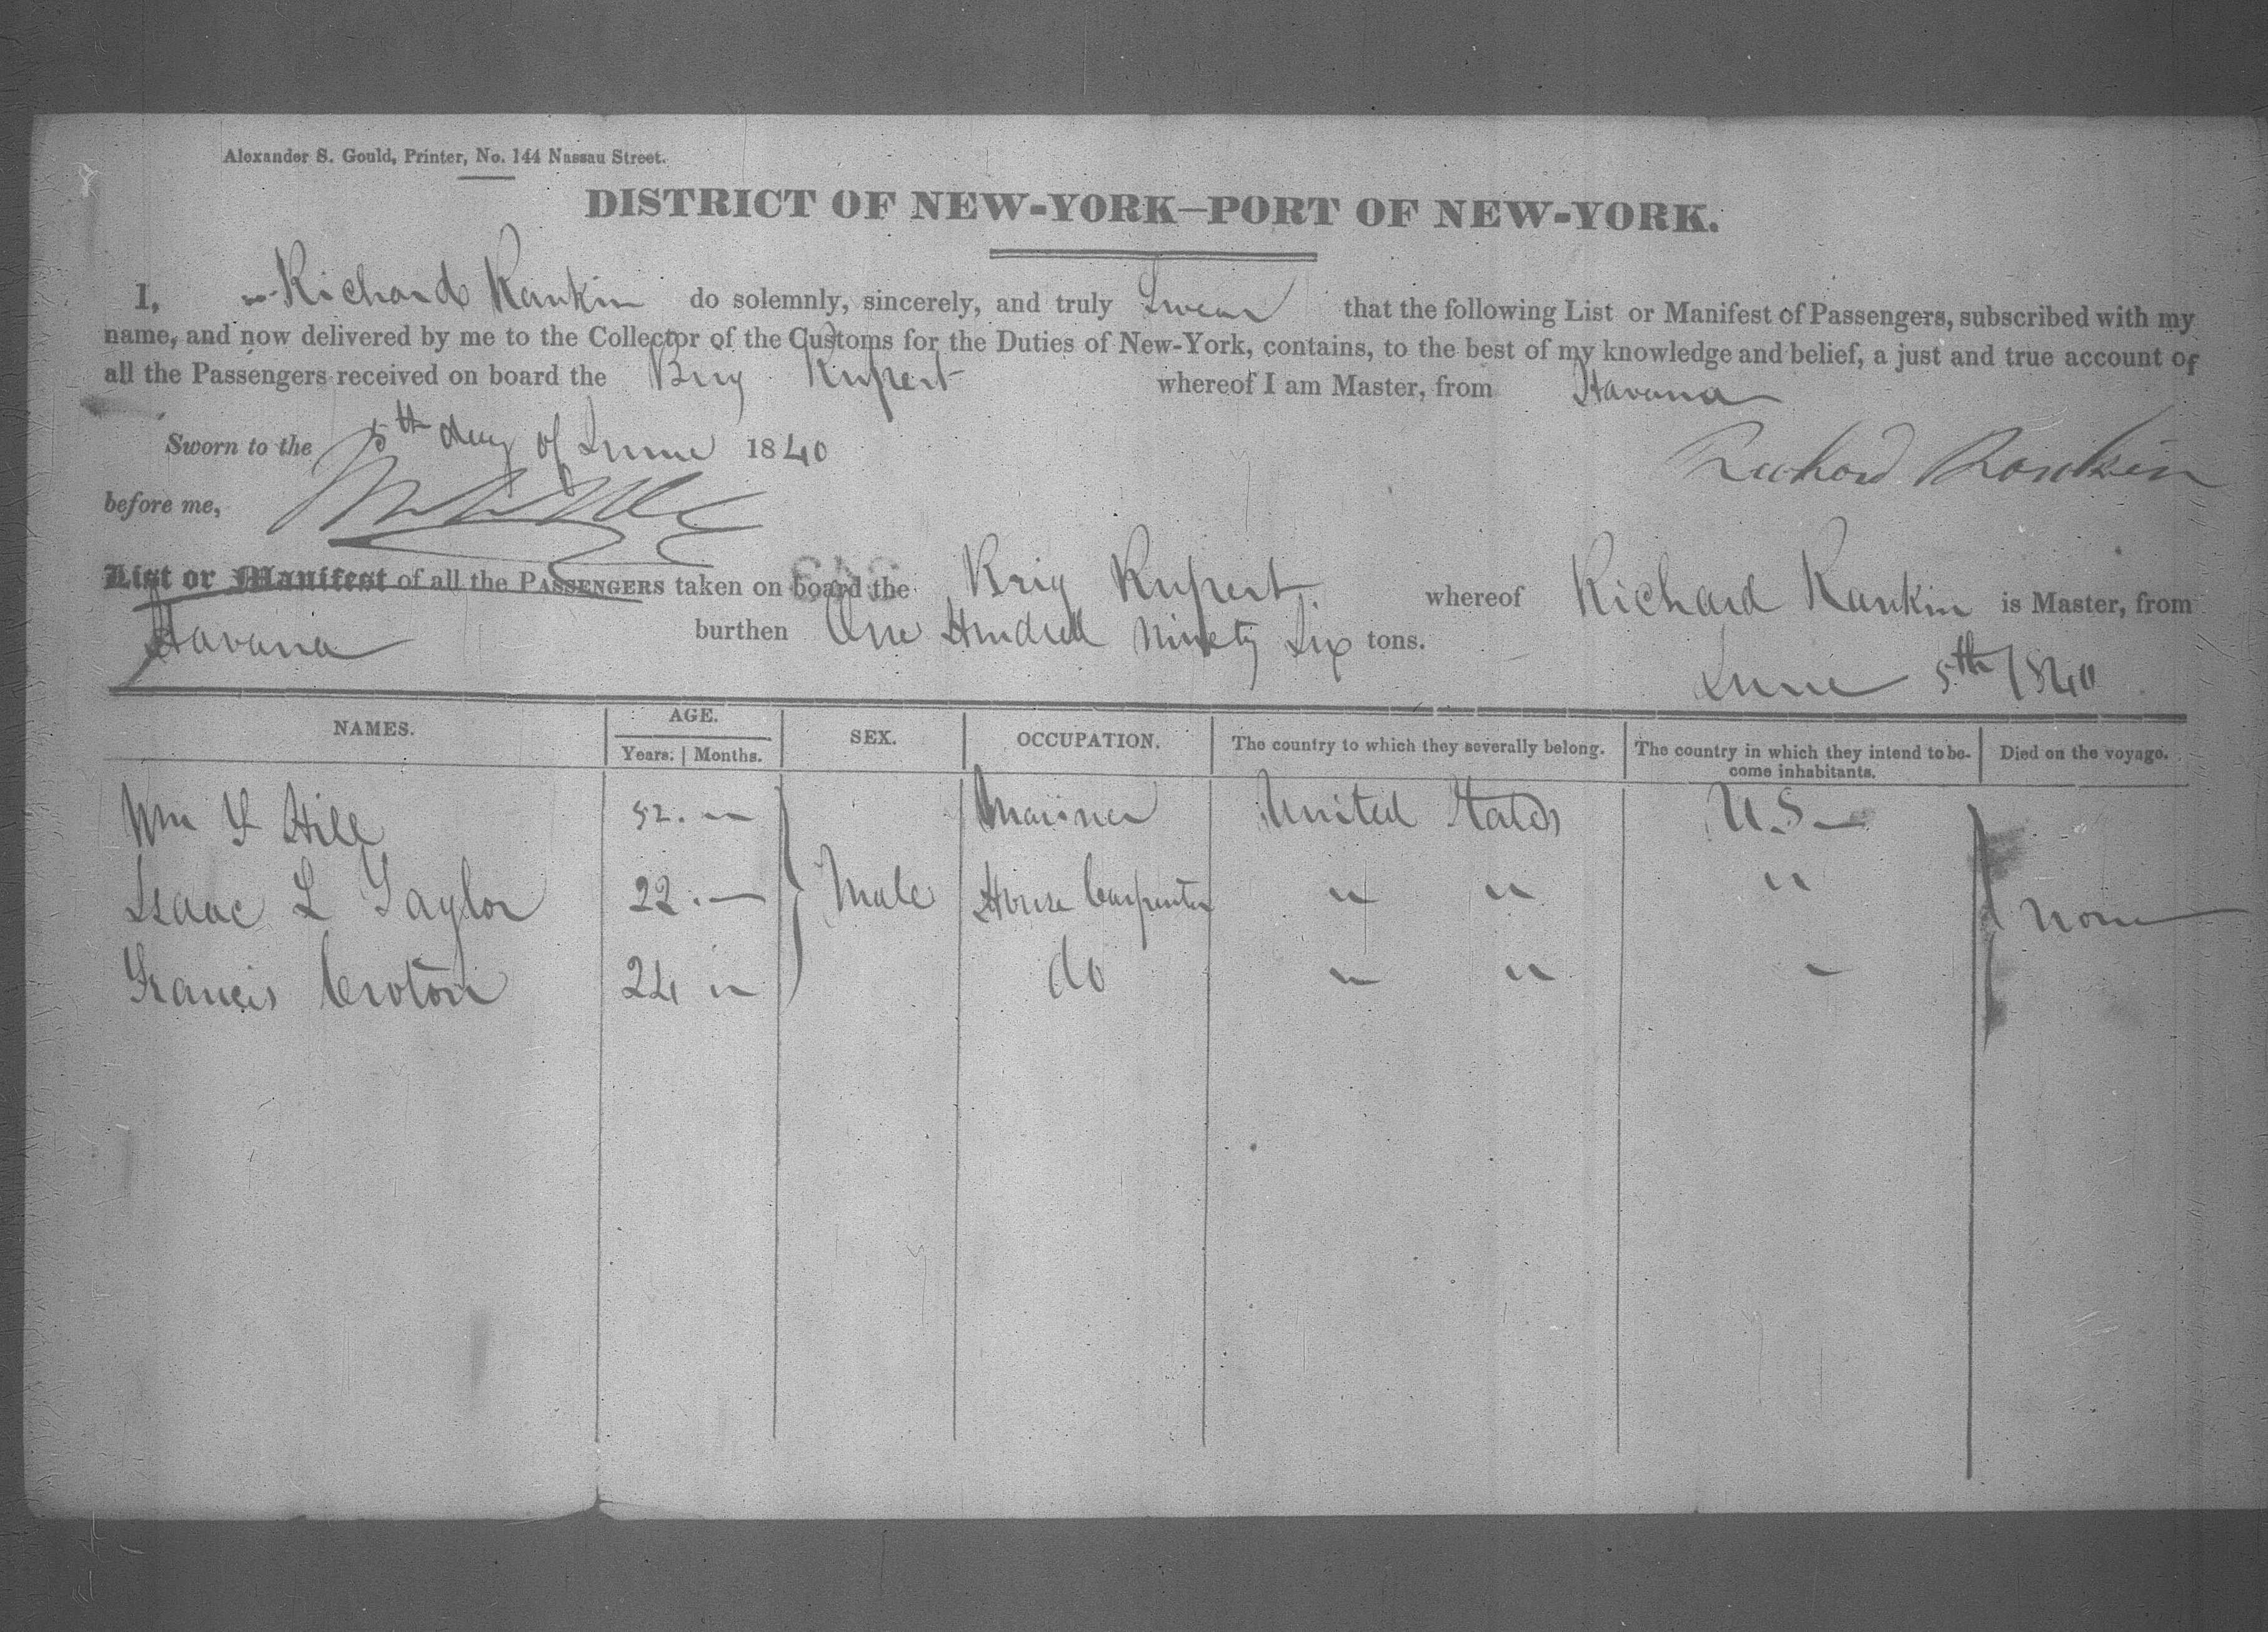 Alexander S. Gould, Printer, No. 144 Nassau Street.
DISTRICT OF NEW-YORK—PORT OF NEW-YORK.
I, Richard Rankin do solemnly, sincerely, and truly Swear that the following List or Manifest of Passengers, subscribed with my
name, and now delivered by me to the Collector of the Customs for the Duties of New-York, contains, to the best of my knowledge and belief, a just and true account of
all the Passengers received on board the Brig Rupert whereof I am Master, from Havana
Sworn to the 5th day of June 1840
Richard Rankin
before me,
List or Manifest of all the PASSENGERS taken on board the Brig Rupert whereof Richard Rankin is Master, from
Havana burthen One Hundred Ninety Six tons.
June 5th 1840
NAMES. AGE. SEX. OCCUPATION. The country to which they severally belong. The country in which they intend to be- Died on the voyage.
Years. Months. come inhabitants.
Wm Hill 52. Mariner United States U.S
Isaac L Taylor 22. Male House Carpenter " " " None
Francis Croton 24 " do " " "